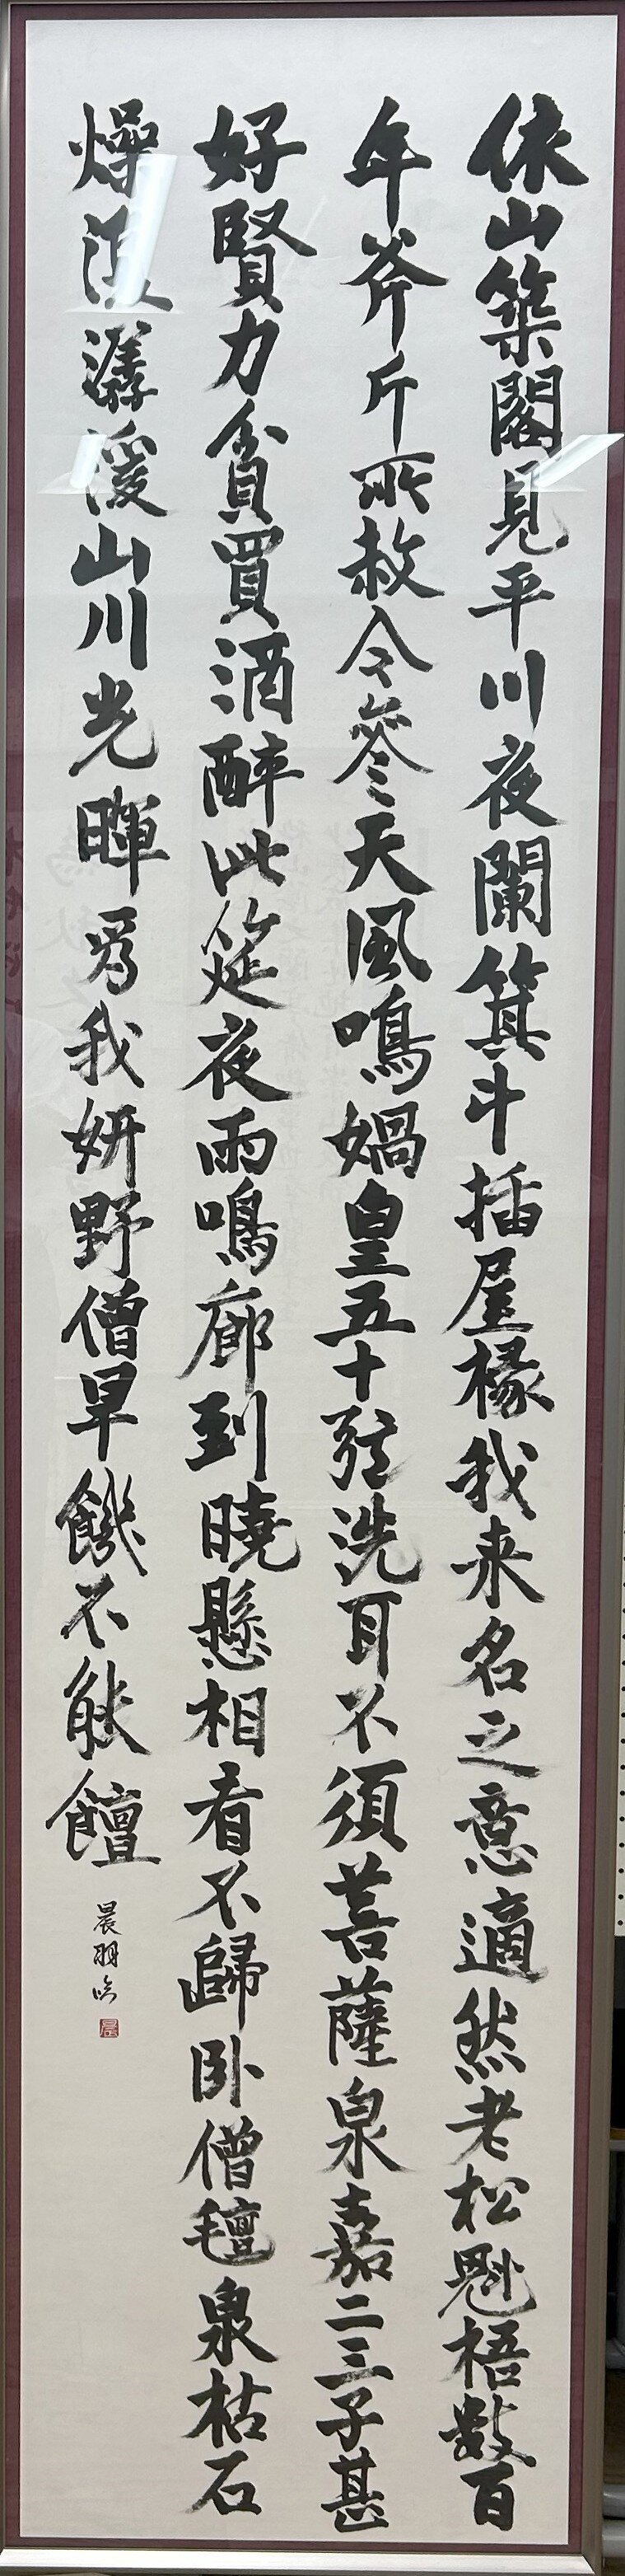 依山築閣見平川夜闌箕斗插屋椽我来名之意適然老松魁梧數百
年斧斤所赦令參天風鳴媧皇五十弦洗耳不須菩薩泉嘉二三子甚
好賢力貧買酒醉此筵夜雨鳴廊到曉懸相看不歸臥僧氊泉枯石
燥復潺湲山川光暉爲我妍野僧早饑不能饘
晨羽臨